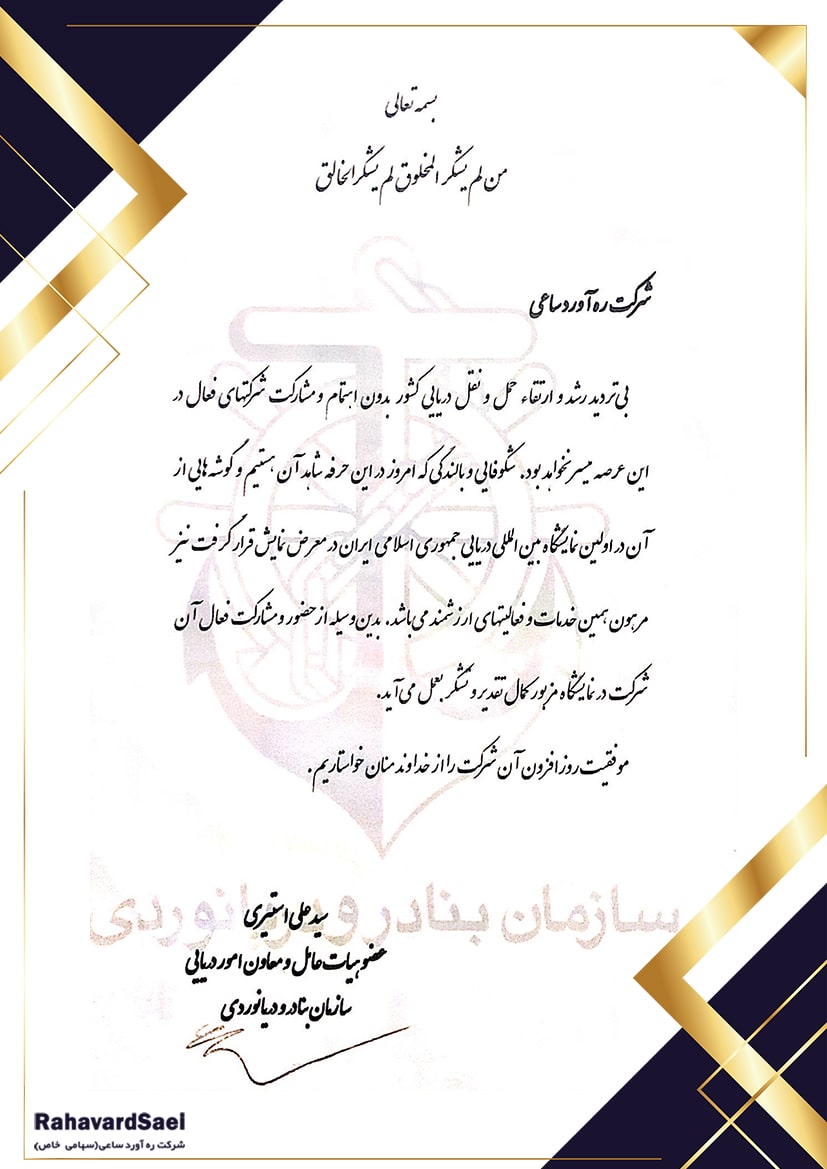 بسمه تعالی
من لم یشکر المخلوق لم یشکر الخالق
شرکت ره آورد ساعی
بی تردید رشد و ارتقاء حمل و نقل دریایی کشور بدون اهتمام و مشارکت شرکتهای فعال در
این عرصه میسر نخواهد بود. شکوفایی و بالندگی که امروز در این حرفه شاهد آن هستیم و گوشه هایی از
آن در اولین نمایشگاه بین المللی دریایی جمهوری اسلامی ایران در معرض نمایش قرار گرفت نیز
مرهون همین خدمات و فعالیتهای ارزشمند می باشد. بدین وسیله از حضور و مشارکت فعال آن
شرکت در نمایشگاه مزبور کمال تقدیر و تشکر بعمل می آید.
موفقیت روز افزون آن شرکت را از خداوند منان خواستاریم.
سازمان بنادر و دریانوردی
سید علی استیری
عضو هیات عامل و معاون امور دریایی
سازمان بنادر و دریانوردی
RahavardSaei
شرکت ره آورد ساعی(سهامی خاص)